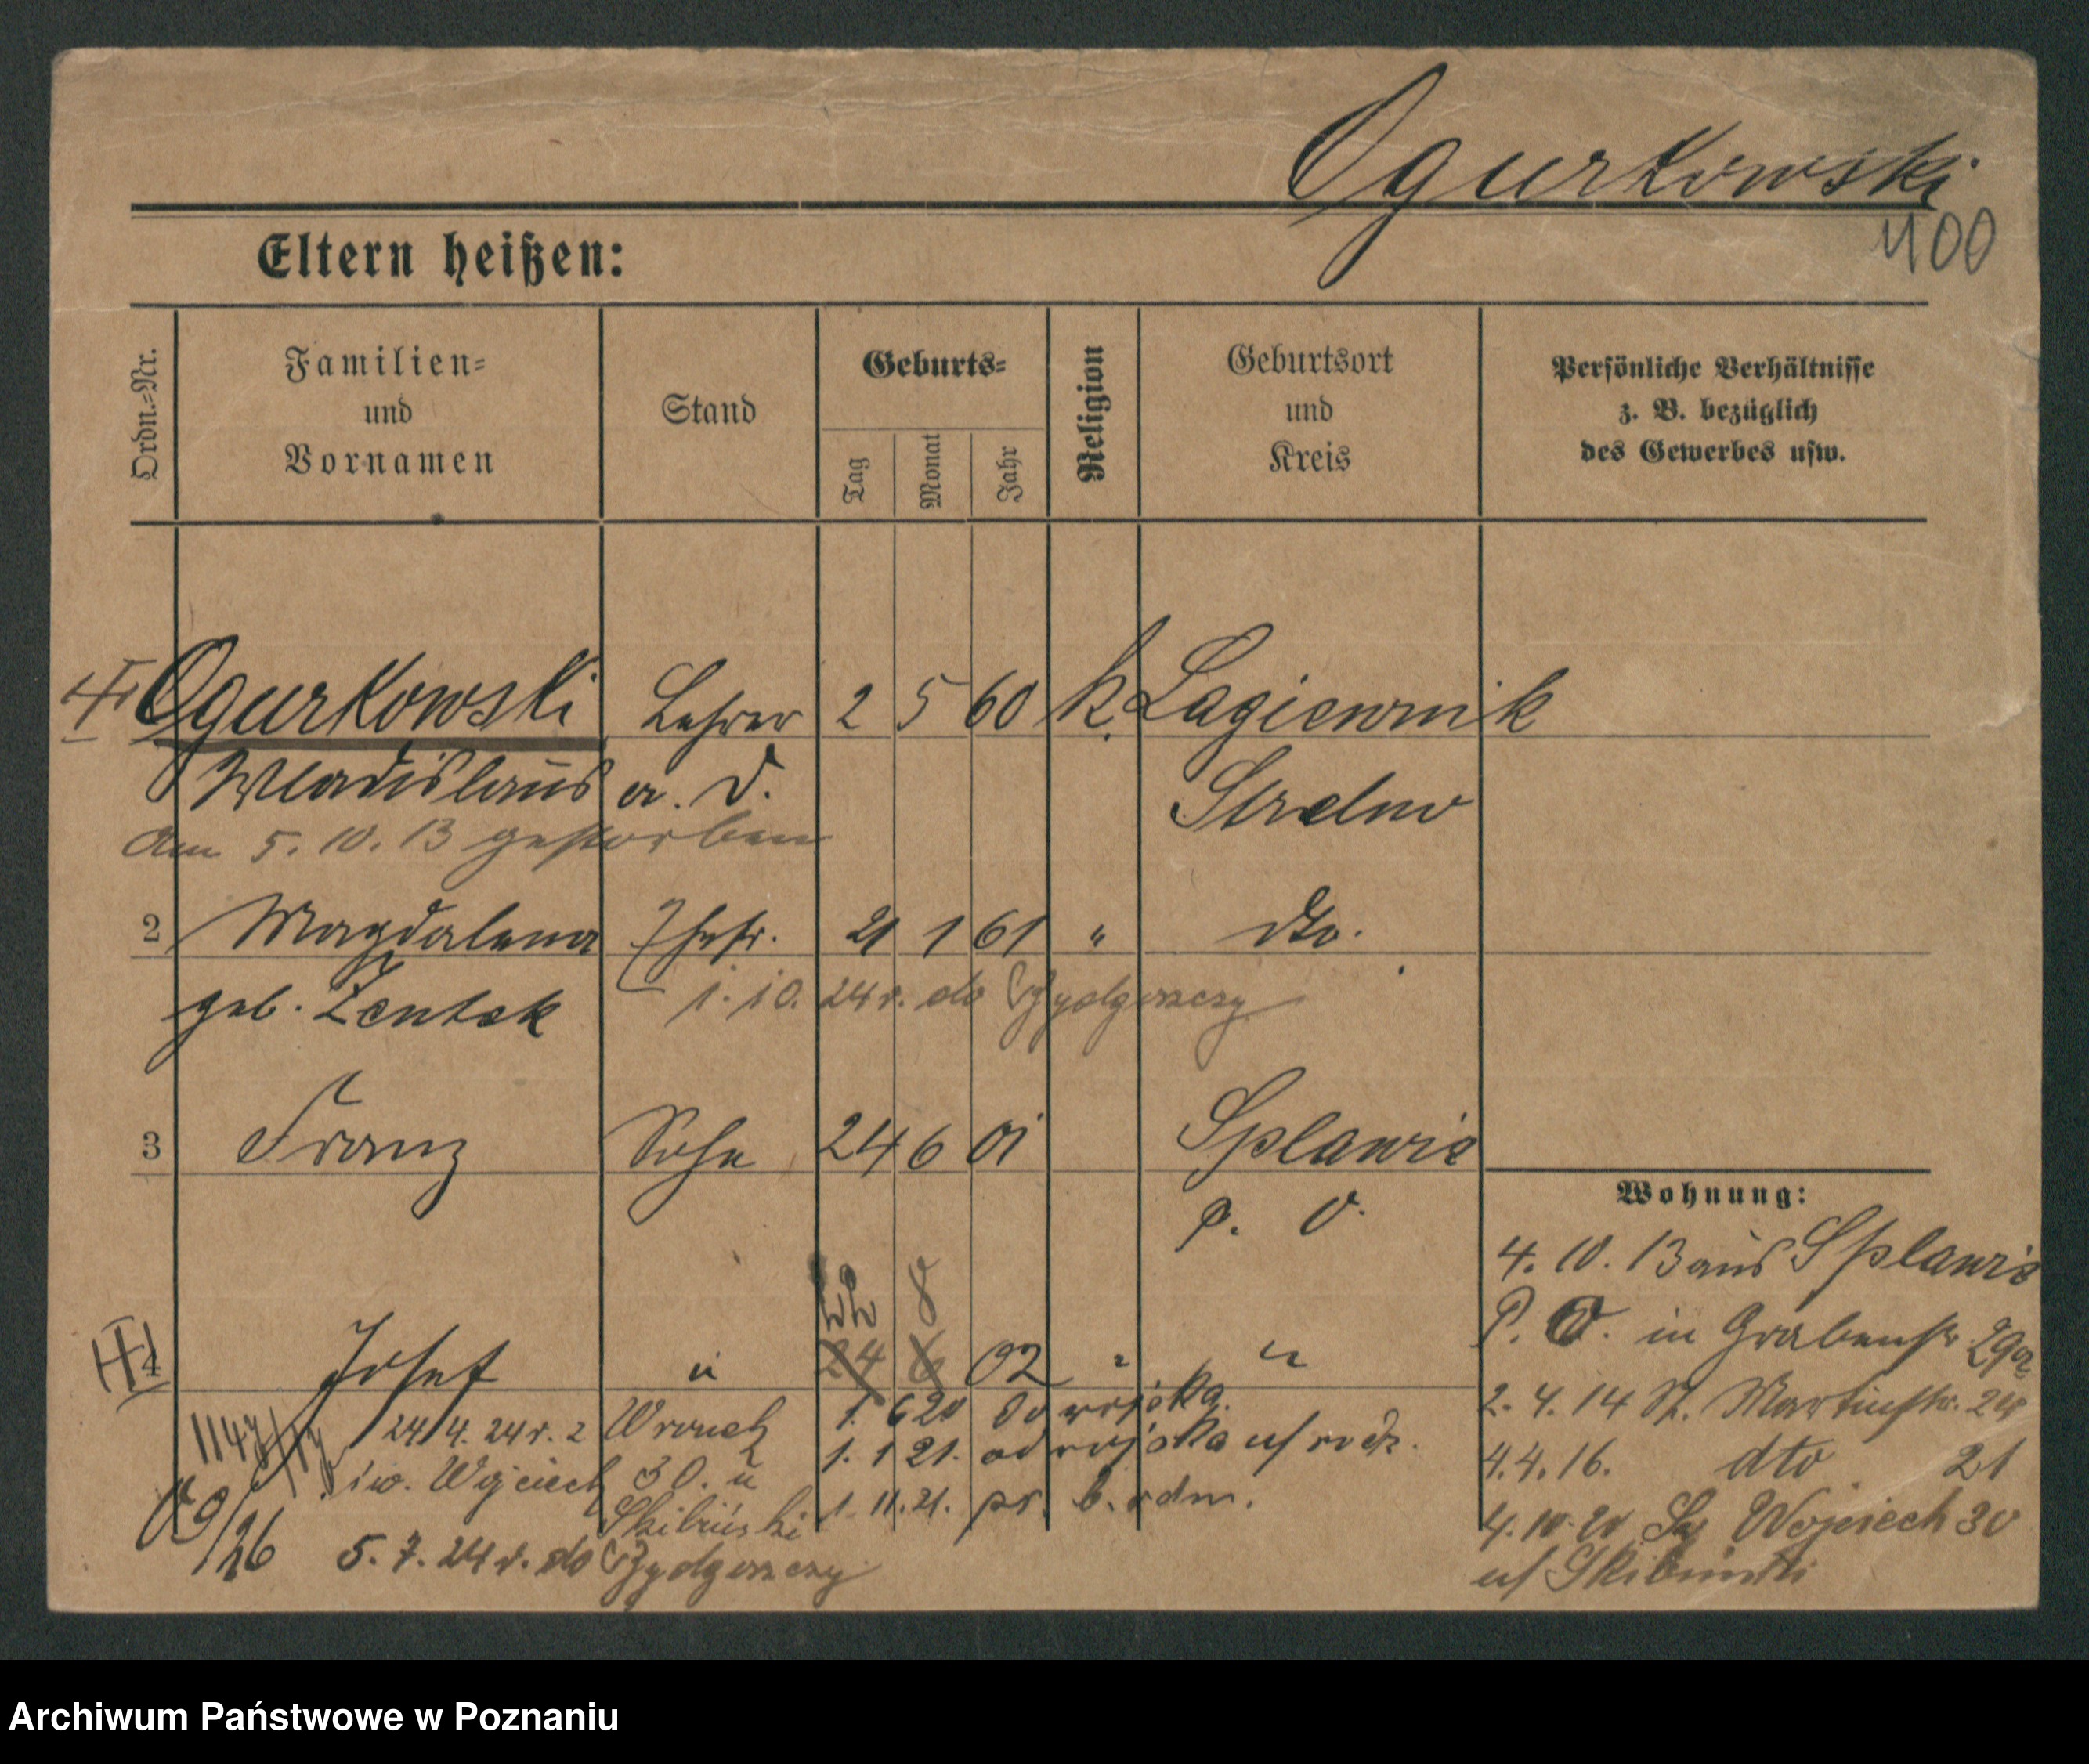 Ogurkowski
400
Eltern heißen:
Ordn.-Nr.
Familien-
und
Vornamen
Stand
Geburts-
Tag
Monat
Jahr
Religion
Geburtsort
und
Kreis
Persönliche Verhältnisse
z. B. bezüglich
des Gewerbes usw.
Ogurkowski Lehrer 2 5 60 k. Lagiewnik
Wladislaus a. D. Strelno
Am 5. 10. 13 gestorben
2 Magdalena Ehefr. 21 1 61 " dto.
geb. Zentek 1. 10. 24 r. do Bydgoszczy
3 Franz Sohn 24 6 01 Splawie
P. O.
Wohnung:
4. 10. 13 aus Splawie
P. O. in Grabenstr. 29a
22 8
4 Josef " 24 6 02 " "
2. 4. 14 St. Martinstr. 24
1. 6 20 do wojska.
24/4. 24 r. z Wronek
1. 1 21. od wojska u/ rodz.
4. 4. 16. dto 21
św. Wojciech 30. u
Skibiński
1. 11. 21. pr. b. zdm.
4. 10. 20 Św Wojciech 30
u/ Skibiński
09/26 5. 7. 24 r. do Bydgoszczy
Archiwum Państwowe w Poznaniu